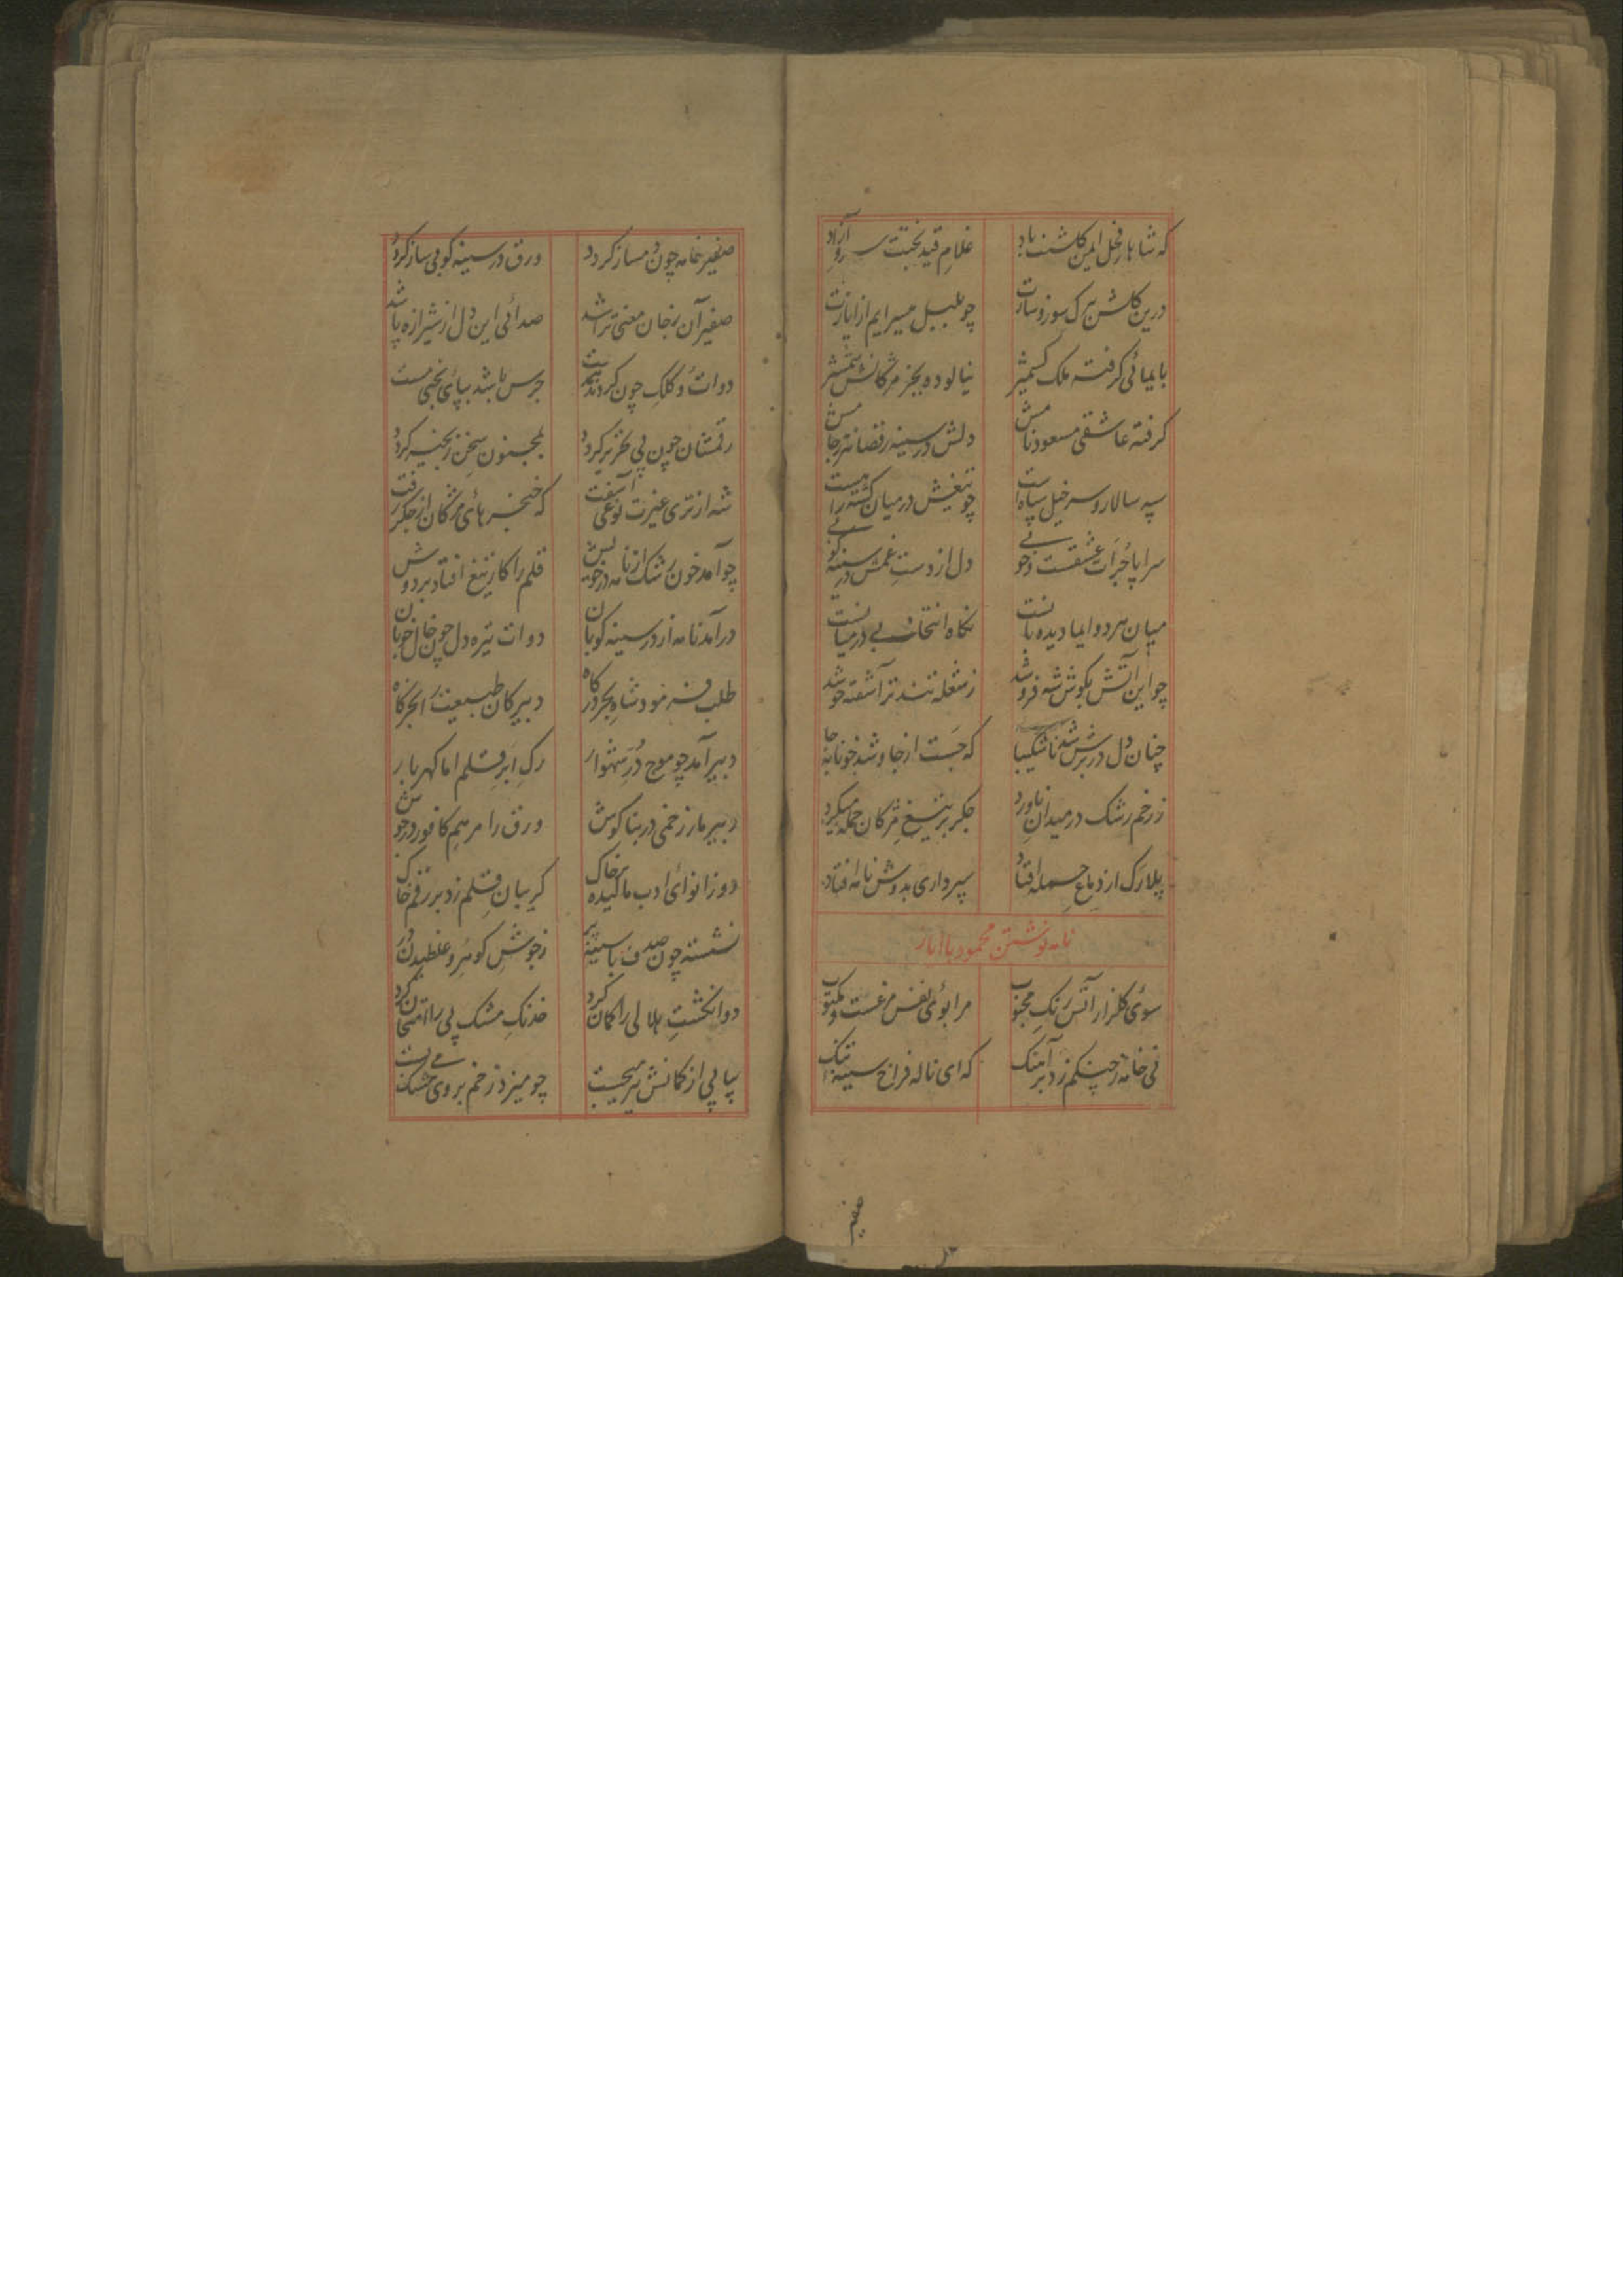 که شاها نخل ایمن کلشنت باد غلام قید بختت سرو آزاد
درین کلشن ببرک سوز و سازت چو بلبل میسرایم از ایازت
بایمائی کرفته ملک کشمیر نیالوده بجز مژکانش شمشیر
کرفته عاشقی مسعود نامش دلش در سینه رقصانتر ز جامش
سپه سالار و سر خیل سپاه است چو تیغش در میان کشته راهست
سراپا جرات عشقست و جوئی دل از دست غمش در سینه کوئی
میان هر دو ایما دیده بانست نکاه انتخابی در میانست
چو این آتش بکوش شه فرو شد ز شعله تند تر آشفته خو شد
چنان دل در برش شد ناشکیبا که جست از جا و شد خونابه جا
ز زخم رشک در میدان ناورد جکر بر تیغ مژکان حمله میکرد
پلارک از دماغ حمله افتاد سپرداری بدوش نامه افتاد
نامه نوشتن محمود با ایاز
سوئی کلزار آتش رنک محبوب مرا بوئی نفس مرغست و مکتوب
نی خامه ز چنکم زد بر آهنک که ای ناله فراخ سینه تنک
صفیر
صفیر خامه چون دمساز کردد ورق در سینه کوبی ساز کردد
صفیر آن ز جان معنی تراشد صدائی این دل از شیرازه پاشد
دوات و کلک چون کردند همدست جرس باشد بپائی بختی مست
رقمشان چون پی تحریر کردد بمجنون سخن زنجیر کردد
شه از تری غیرت نوعی آشفت که خنجر هائی مژکان از جکر رفت
چو آمد خون رشک از نامه در جوش قلم را کار تیغ افتاد بر دوش
در آمد نامه از در سینه کوبان دوات تیره دل چون خال خوبان
طلب فرمود شاه بحر درکاه دبیر کان طبیعت ابر خرکاه
دبیر آمد چو موج در شهوار رک ابر قلم اما کهر بار
دبیر مار زخمی در بناکوش ورق را مرهم کافور در جوش
دو زانوائی ادب مالیده بر خاک کریبان قلم زد بر رقم چاک
نشسته چون صدف با سینه پر ز جوش کوهر و غلطیدن در
دو انکشت هلالی را کمان کرد خدنک مشک پی را امتحان کرد
پیاپی از کمانش تیر میجست چو میزد زخم بر وی مشک می بست